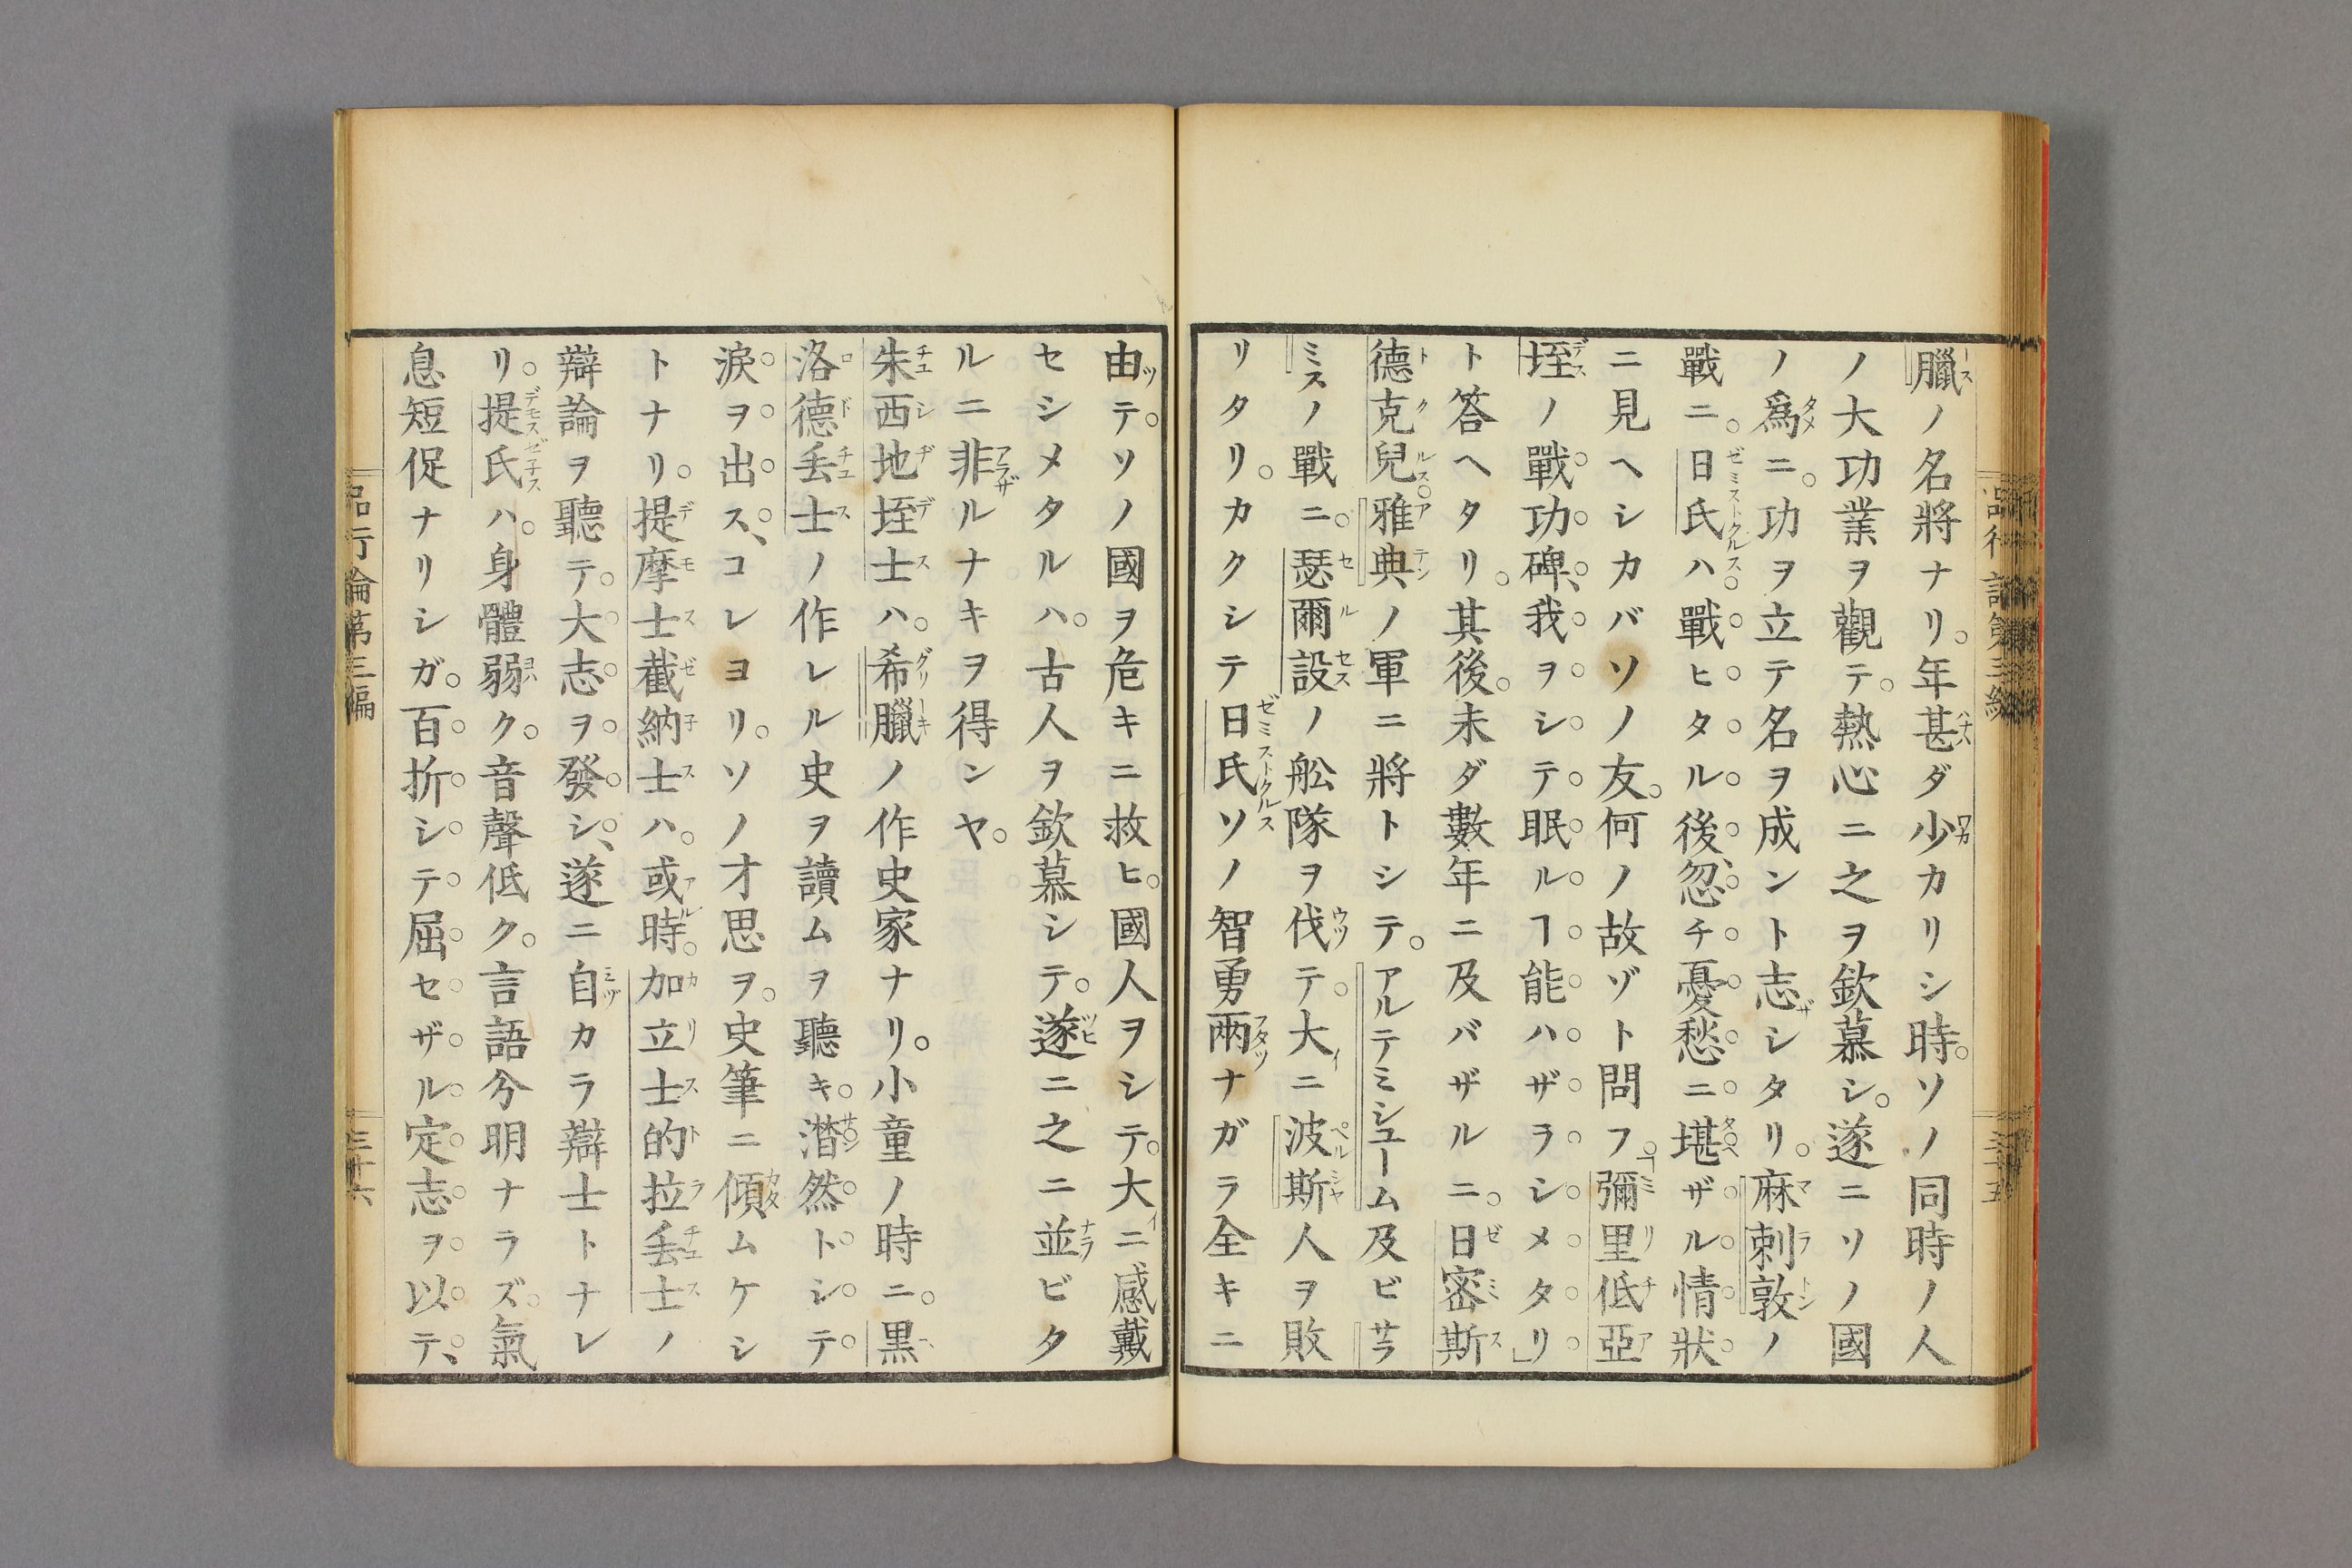 臘ノ名將ナリ。年甚ダ少カリシ時。ソノ同時ノ人
ノ大功業ヲ觀テ。熱心ニ之ヲ欽慕シ。遂ニソノ國
ノ爲ニ。功ヲ立テ名ヲ成ント志シタリ。麻剌敦ノ
戰ニ。日氏ハ戰ヒタル後、忽チ憂愁ニ堪ザル情狀
ニ見ヘシカバソノ友。何ノ故ゾト問フ。「彌里低亞
垤ノ戰功碑、我ヲシテ眠ルヿ能ハザラシメタリ」
ト答ヘタリ。其後。未ダ數年ニ及バザルニ。日密斯
德克兒雅典ノ軍ニ將トシテ。アルテミシユーム及ビサラ
ミスノ戰ニ。瑟爾設ノ舩隊ヲ伐テ。大ニ波斯人ヲ敗
リタリ。カクシテ日氏ソノ智勇兩ナガラ全キニ
由テ。ソノ國ヲ危キニ救ヒ。國人ヲシテ。大ニ感戴
セシメタルハ。古人ヲ欽慕シテ。遂ニ之ニ並ビタ
ルニ非ルナキヲ得ンヤ。
朱西地垤士ハ。希臘ノ作史家ナリ。小童ノ時ニ。黒
洛德丢士ノ作レル史ヲ讀ムヲ聽キ。潸然トシテ
淚ヲ出ス、コレヨリ。ソノ才思ヲ。史筆ニ傾ムケシ
トナリ。提摩士截納士ハ。或時。加立士的拉丢士ノ
辯論ヲ聽テ。大志ヲ發シ、遂ニ自カラ辯士トナレ
リ。提氏ハ。身體弱ク。音聲低ク。言語分明ナラズ。氣
息短促ナリシガ。百折シテ屈セザル定志ヲ以テ、
品行論第三編
三十六